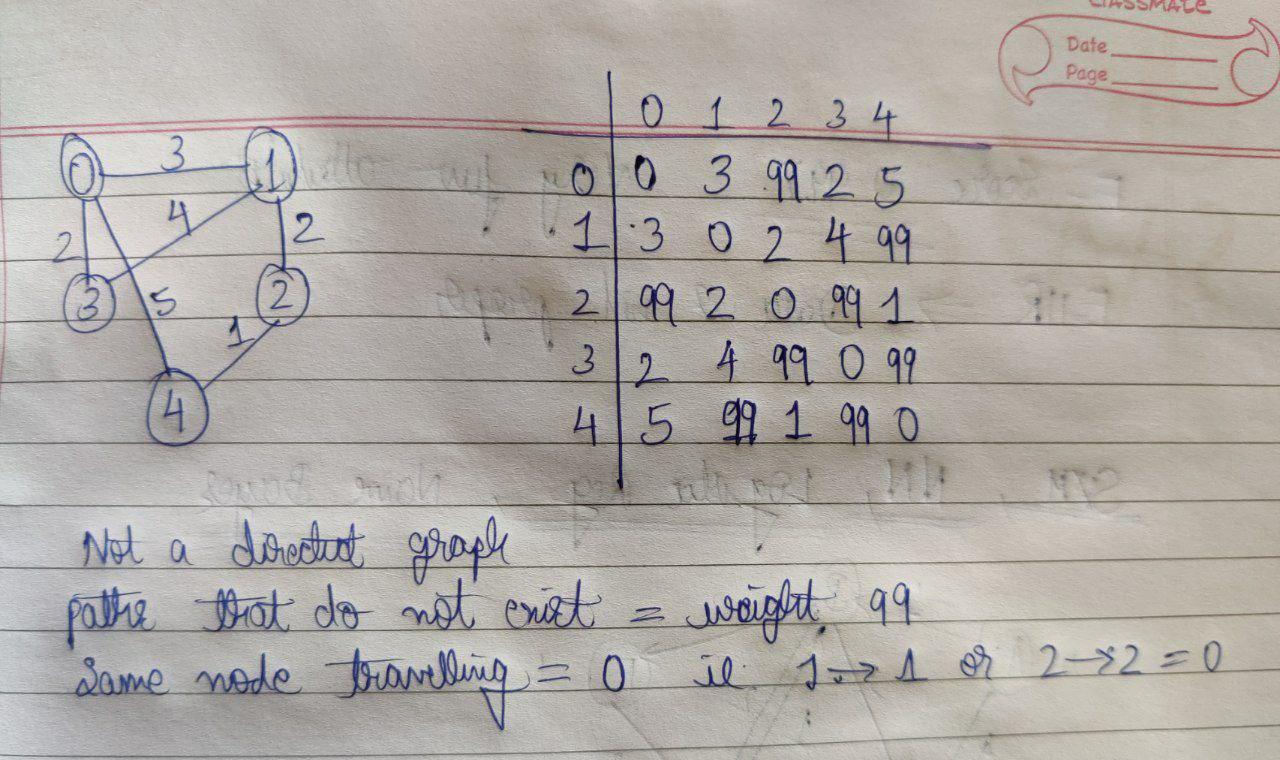 classmate
Date
Page
0 3 1
4
2 2
3 5 2
1
4
0 1 2 3 4
0 0 3 99 2 5
1 3 0 2 4 99
2 99 2 0 99 1
3 2 4 99 0 99
4 5 99 1 99 0
Not a directed graph
paths that do not exist = weight 99
Same node travelling = 0 ie. 1 → 1 or 2 → 2 = 0